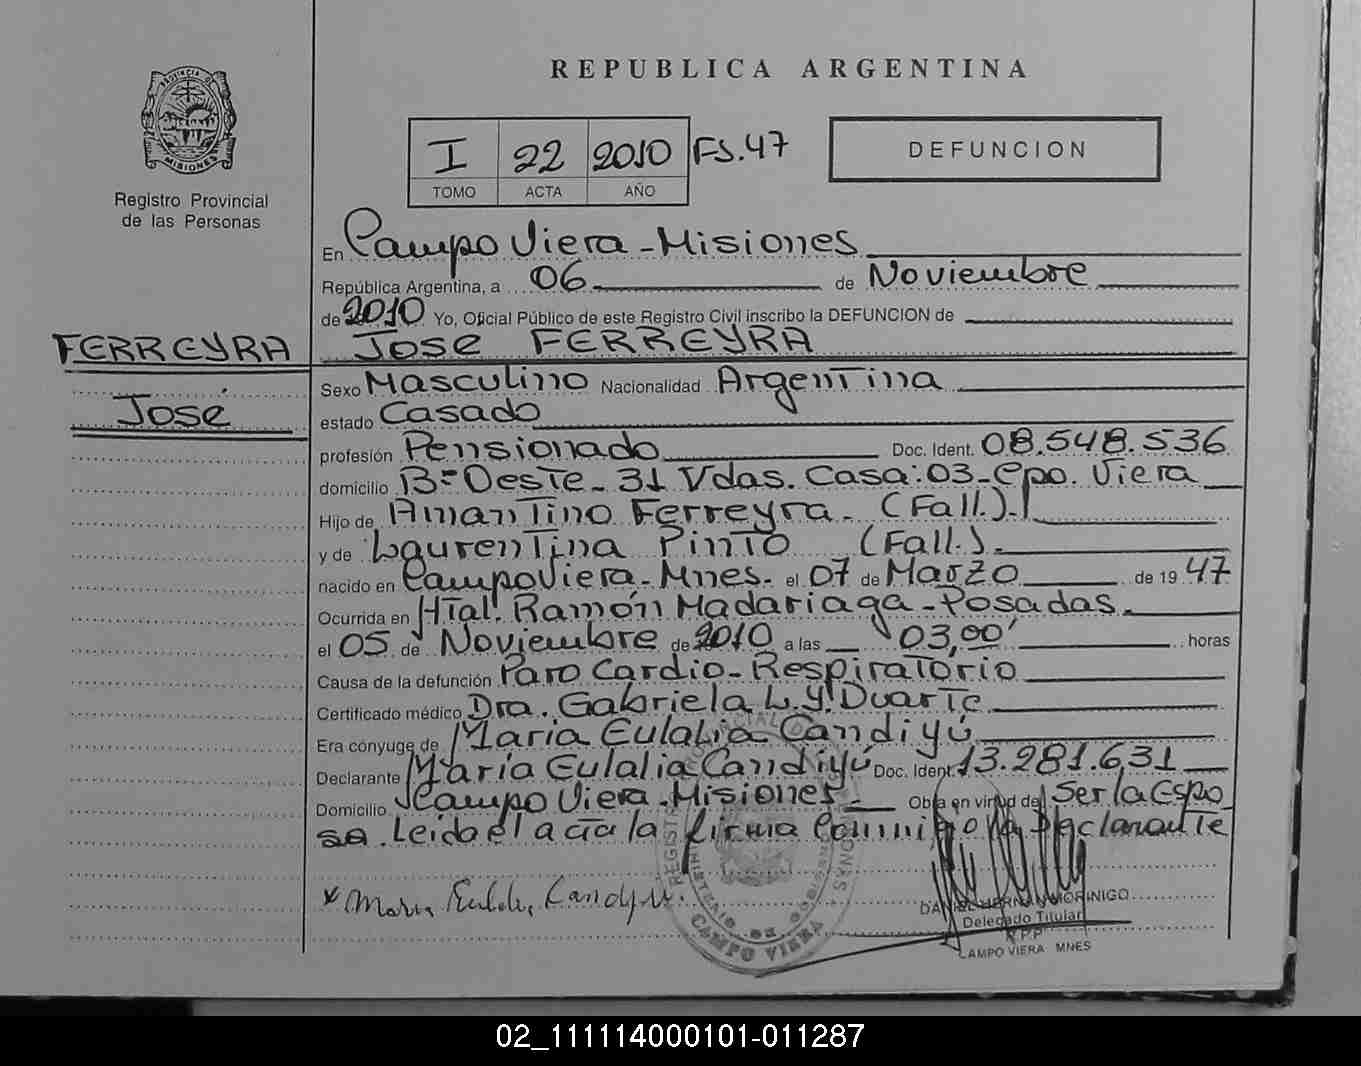 REPUBLICA ARGENTINA
PROVINCIA DE MISIONES
Registro Provincial
de las Personas
I 22 2010 FS.47
TOMO ACTA AÑO
DEFUNCION
En Campo Viera - Misiones
República Argentina, a 06 de Noviembre
de 2010 Yo, Oficial Público de este Registro Civil inscribo la DEFUNCION de
FERREYRA
José
Jose FERREYRA
Sexo Masculino Nacionalidad Argentina
estado Casado
profesión Pensionado Doc. Ident. 08.548.536
domicilio B= Oeste - 31 Vdas. Casa: 03 - Cpo. Viera
Hijo de Amantino Ferreyra - (Fall.).
y de Laurentina Pinto (Fall.).
nacido en Campo Viera - Mnes. el 07 de Marzo de 19 47
Ocurrida en Htal. Ramón Madariaga - Posadas.
el 05 de Noviembre de 2010 a las 03,00' horas
Causa de la defunción Paro Cardio - Respiratorio
Certificado médico Dra. Gabriela L.Y. Duarte
Era cónyuge de Maria Eulalia Candiyú
Declarante María Eulalia Candiyú Doc. Ident. 13.281.631
Domicilio Campo Viera - Misiones - Obra en virtud de Ser la Espo
sa. Leida el acta la firma Conmigo la Declarante
x Maria Eulalia Candiyu.
CAMPO VIERA
DANIEL HERNAN MORINIGO
Delegado Titular
R.P.P
CAMPO VIERA MNES
02_111114000101-011287